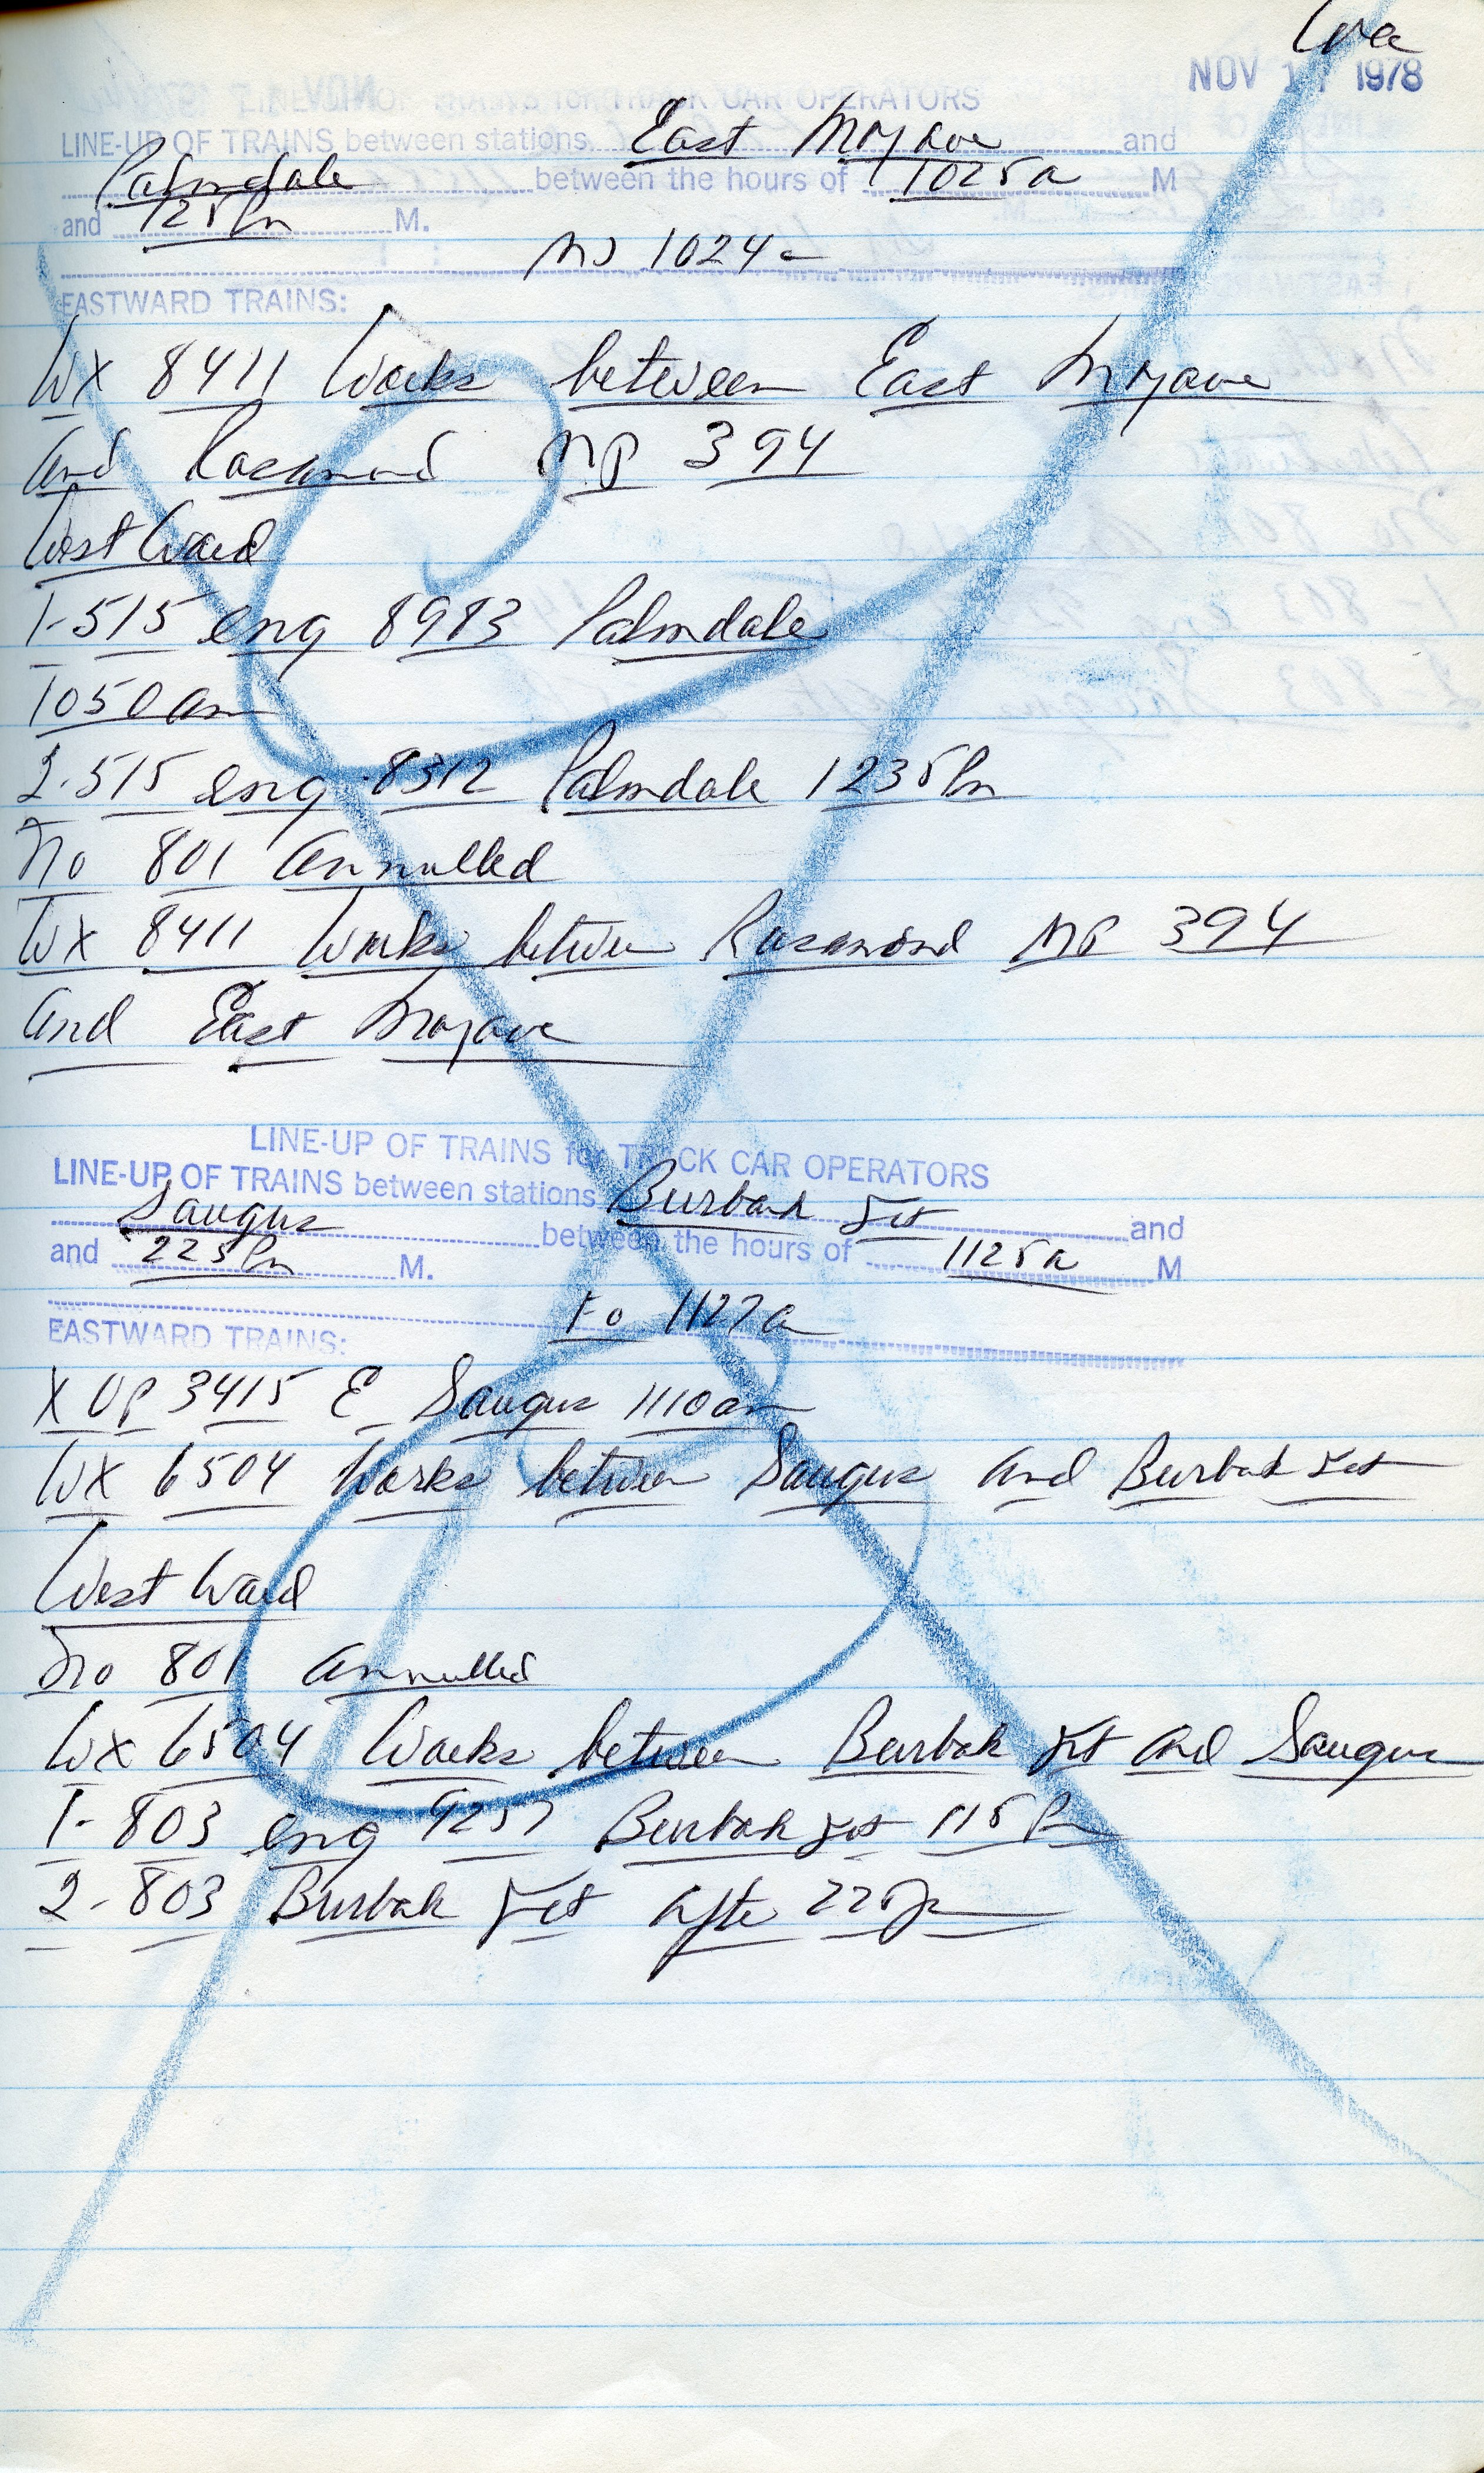 NOV 1 1978
LINE-UP OF TRAINS for TRACK CAR OPERATORS
LINE-UP OF TRAINS between stations East Mojave and
Palmdale between the hours of 1025a M
and 125Pm M.
1024a
EASTWARD TRAINS:
WX 8411 Works between East Mojave
and Rosamond MP 394
West Ward
1-515 eng 8983 Palmdale
1050am
2-515 eng 8312 Palmdale 1235Pm
No 801 annulled
WX 8411 Works between Rosamond MP 394
and East Mojave
LINE-UP OF TRAINS for TRACK CAR OPERATORS
LINE-UP OF TRAINS between stations Burbank Jct and
Saugus between the hours of 1125a M
and 225Pm M.
1127a
EASTWARD TRAINS:
X UP 3415 E Saugus 1110am
WX 6504 Works between Saugus and Burbank Jct
West Ward
No 801 annulled
WX 6504 Works between Burbank Jct and Saugus
1-803 eng 9257 Burbank Jct 115Pm
2-803 Burbank Jct after 225P